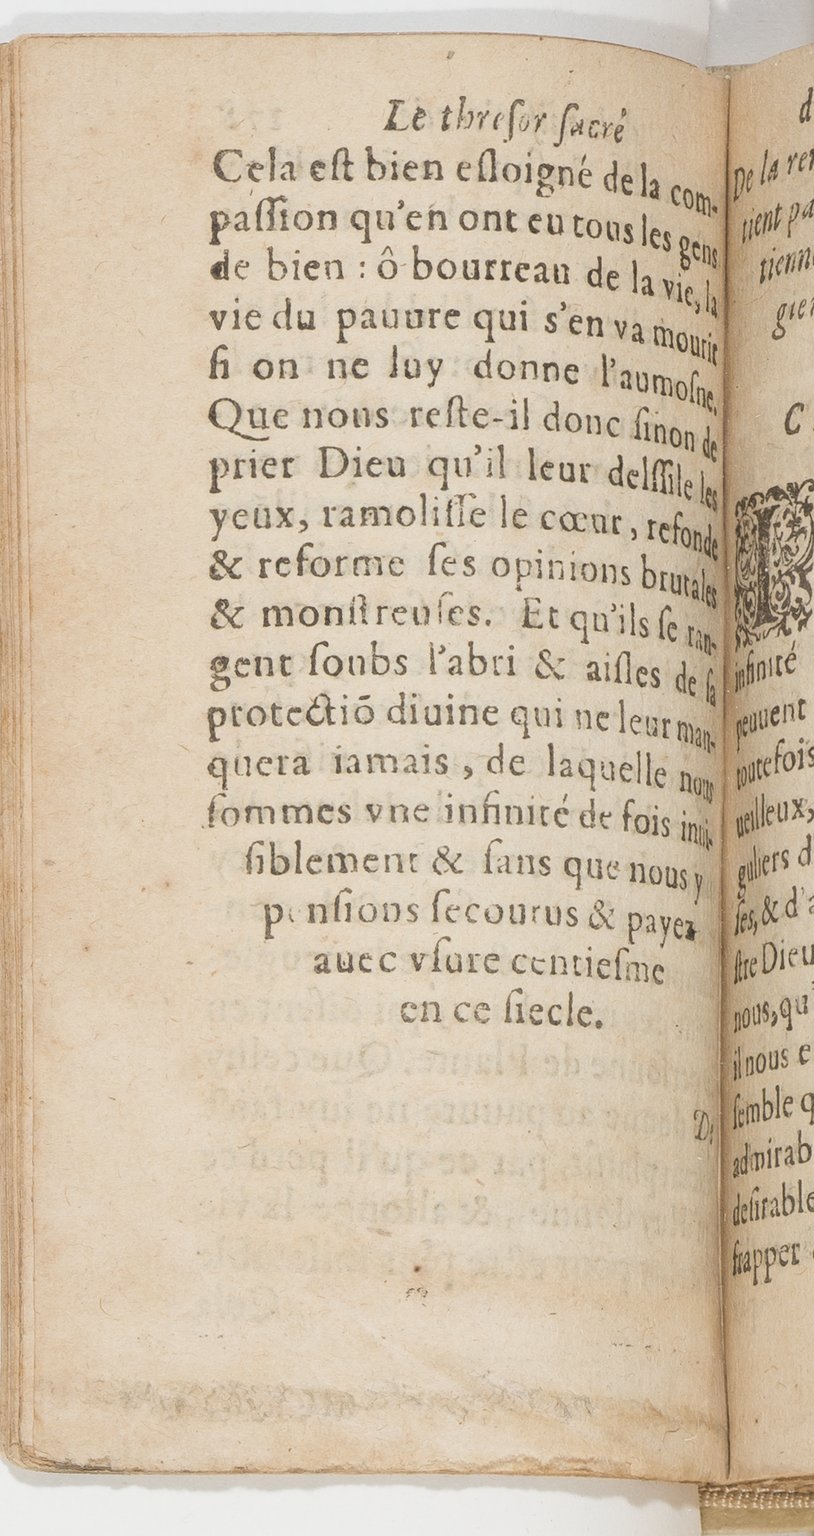 Le thresor sacré
Cela est bien esloigné de la com-
passion qu'en ont eu tous les gens
de bien : ô bourreau de la vie, la
vie du pauure qui s'en va mourir
si on ne luy donne l'aumosne.
Que nous reste-il donc sinon de
prier Dieu qu'il leur delssile les
yeux, ramolisse le cœur, refonde
& reforme ses opinions brutales
& monstreuses. Et qu'ils se ran-
gent soubs l'abri & aisles de sa
protectiō diuine qui ne leur man-
quera iamais, de laquelle nous
sommes vne infinité de fois inui-
siblement & sans que nous y
pensions secourus & payez
auec vsure centiesme
en ce siecle.
De
d
De la ren
tient pa
tienne
gier
C
infinité
peuuent
toutefois
ueilleux,
guliers d
ses, & d'a
stre Dieu
nous, qu'
il nous e
semble q
admirab
desirable
frapper